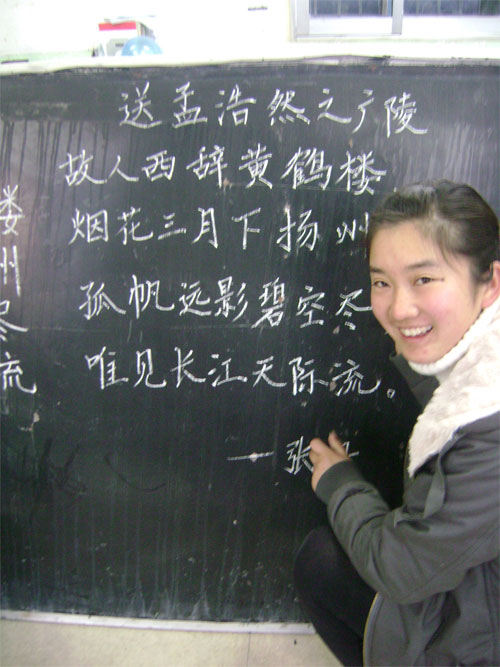 楼
州
尽
流
送孟浩然之广陵
故人西辞黄鹤楼,
烟花三月下扬州
孤帆远影碧空尽
唯见长江天际流。
—张